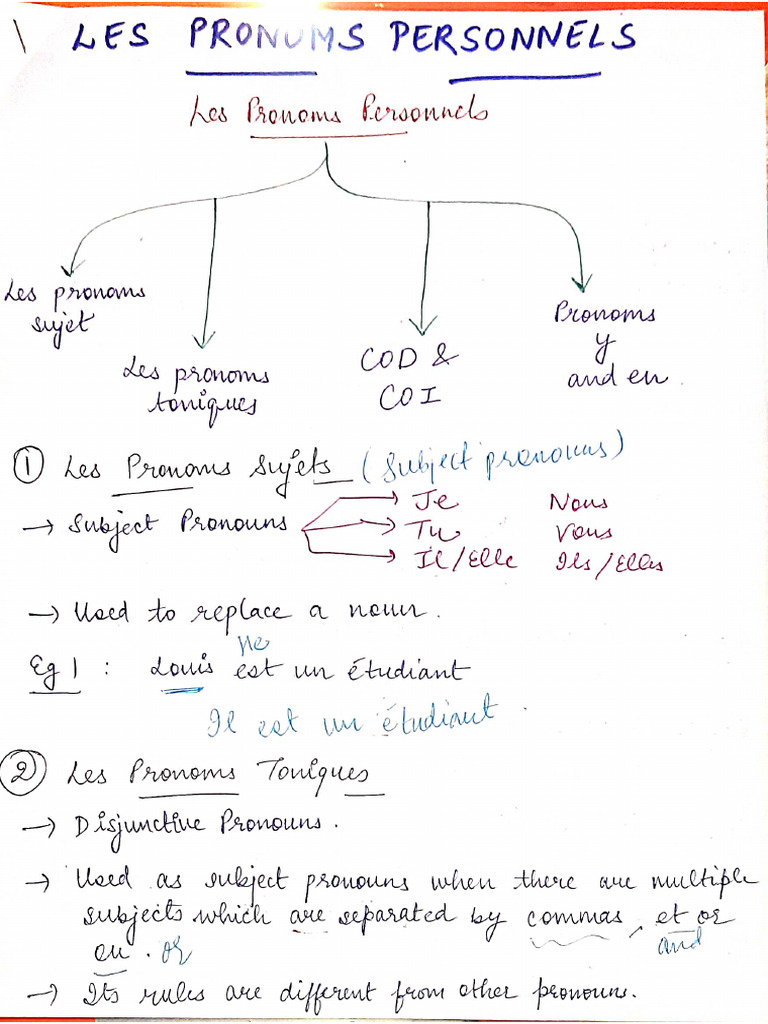 LES PRONUMS PERSONNELS
Les Pronoms Personnels
Les pronoms
sujet
Les pronoms
toniques
COD &
COI
Pronoms
y
and en.
① Les Pronoms Sujets (Subject pronouns)
→ Subject Pronouns
Je Nous
Tu Vous
Il/Elle Ils/Elles
→ Used to replace a noun.
Eg 1 : Louis est un étudiant
Il est un étudiant.
② Les Pronoms Toniques
→ Disjunctive Pronouns.
→ Used as subject pronouns when there are multiple
subjects which are separated by commas, et or
and
ou. or
→ Its rules are different from other pronouns.